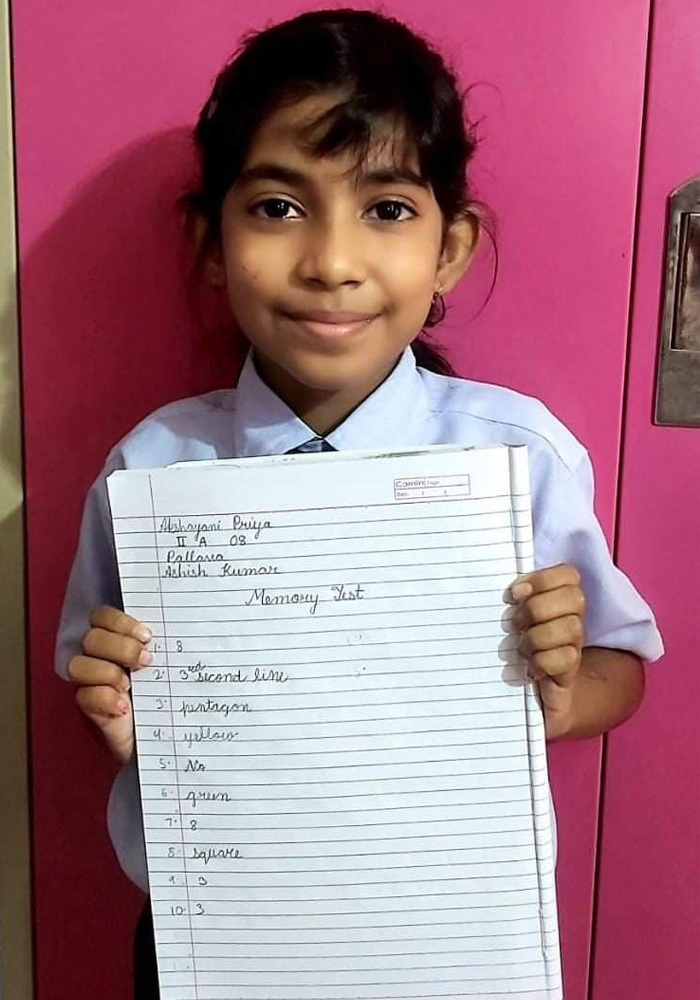 Camlin Page
Date / /
Akshayani Priya
II A 08
Pallavia
Ashish Kumar
Memory Test
1. 8
2. 3rd second line
3. pentagon
4. yellow
5. No
6. green
7. 8
8. square
9 3
10. 3